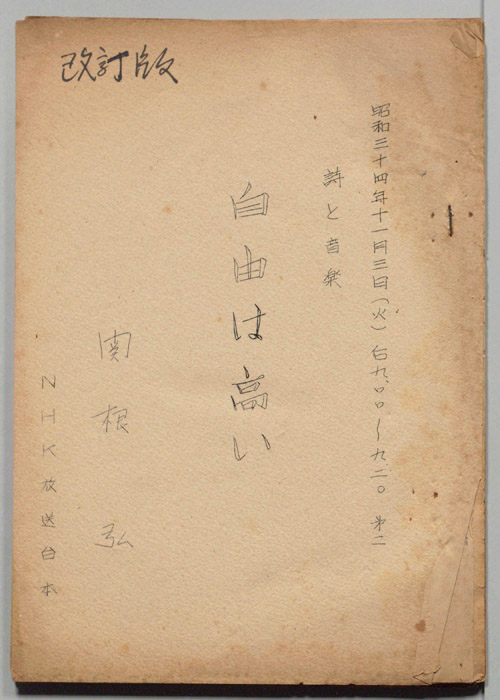 改訂版
昭和三十四年十一月三日(火)后九.〇〇〜九.二〇 第二
詩と音楽
自由は高い
関根弘
NHK放送台本